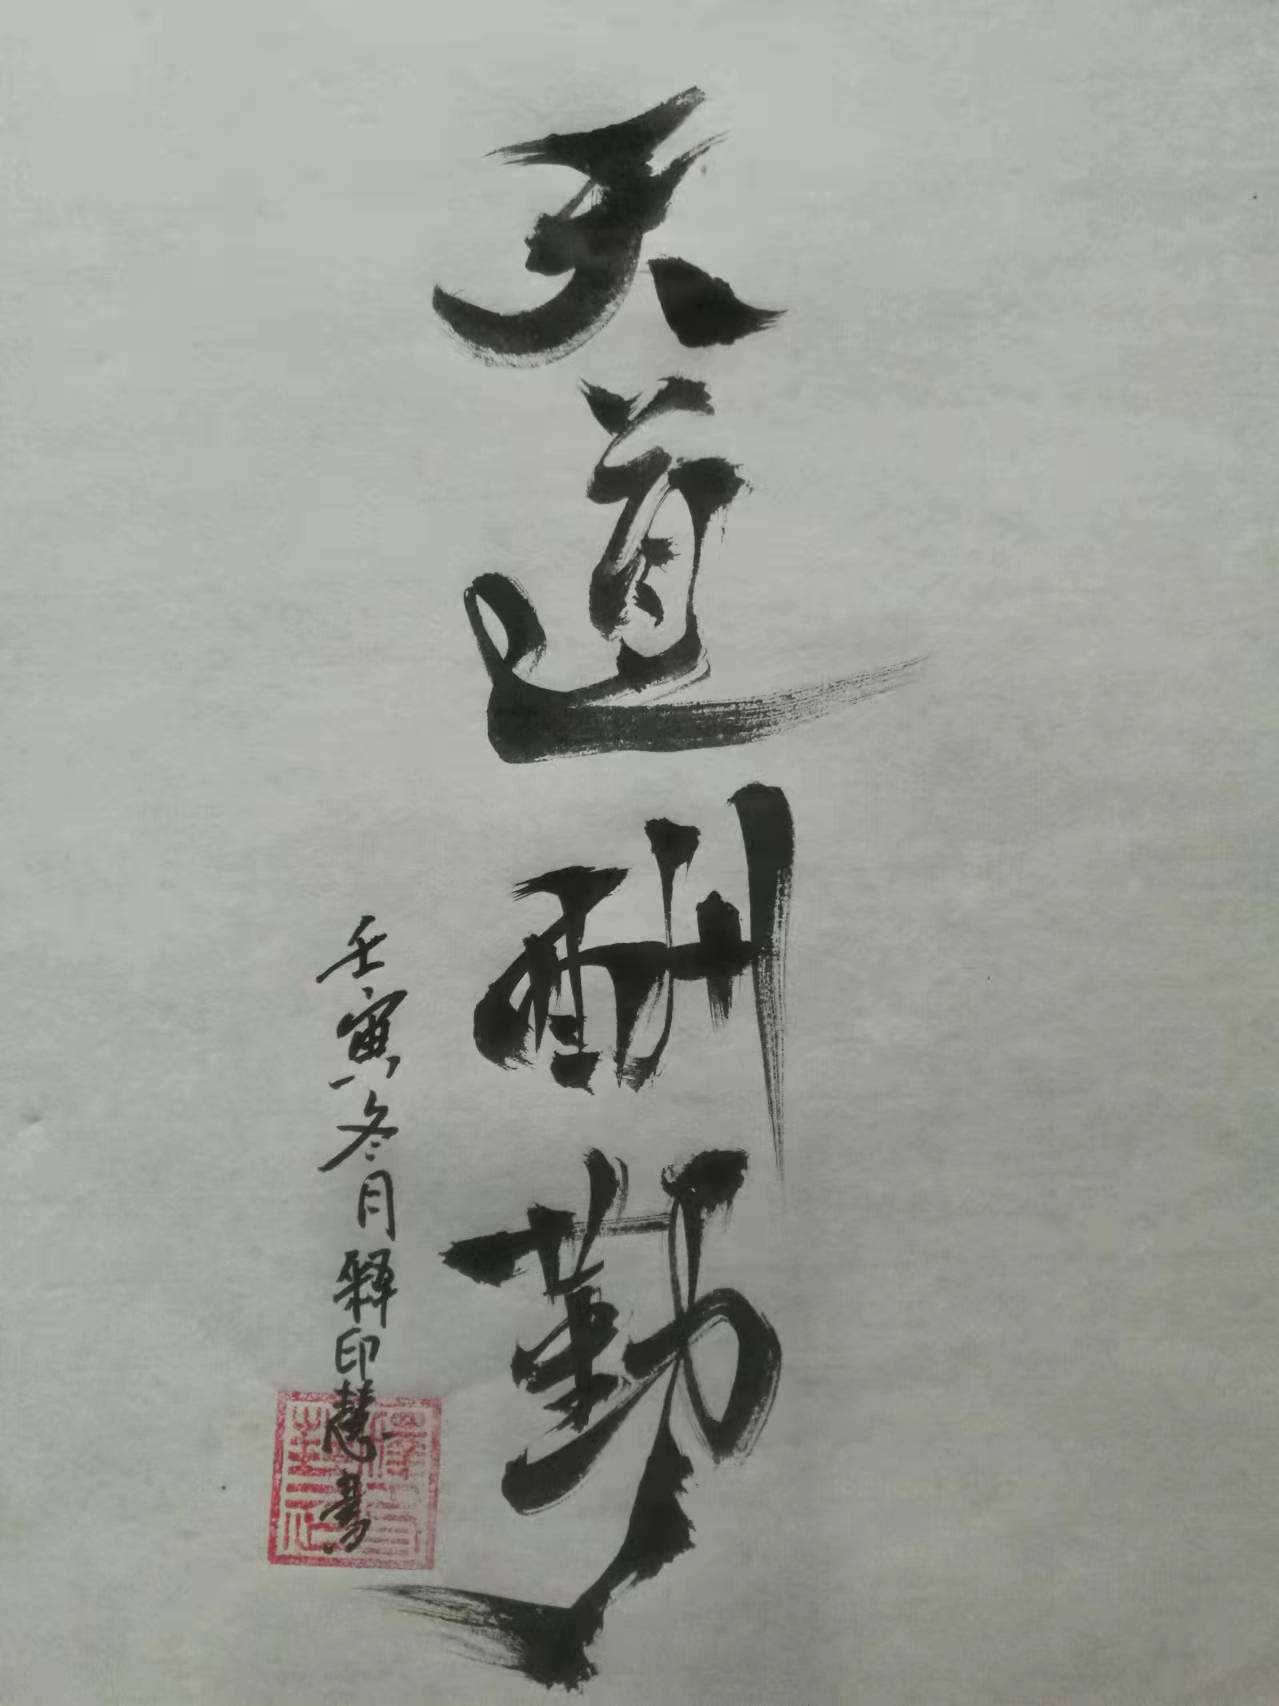 天道酬勤
壬寅冬月釋印慧書